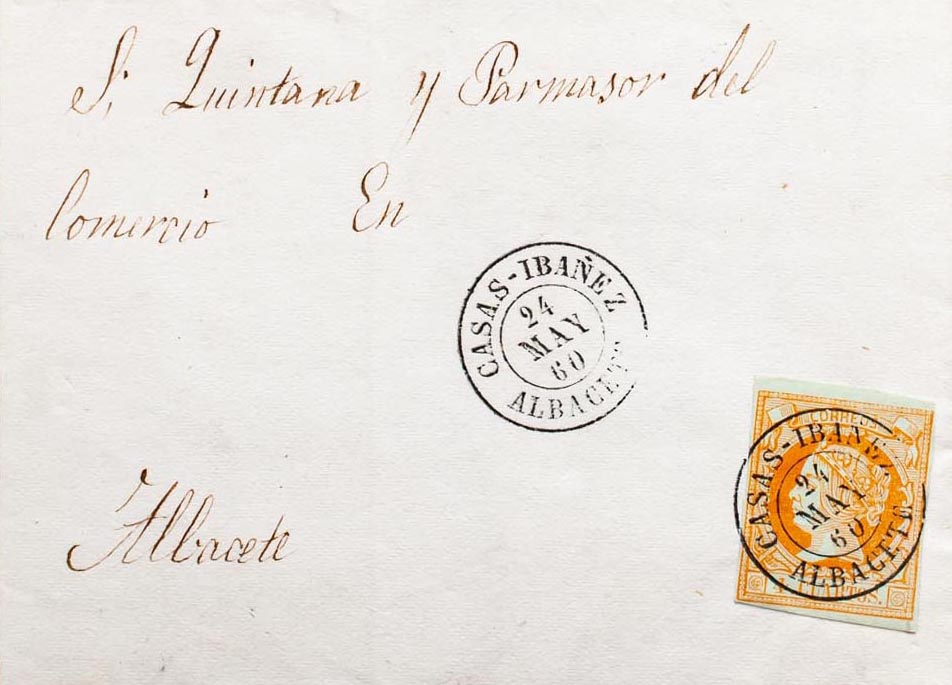 S. Quintana y Parmasor del
Comercio En
CASAS-IBAÑEZ
24
MAY
60
ALBACETE
Albacete
CORREOS
CASAS-IBAÑEZ
24
MAY
60
ALBACETE